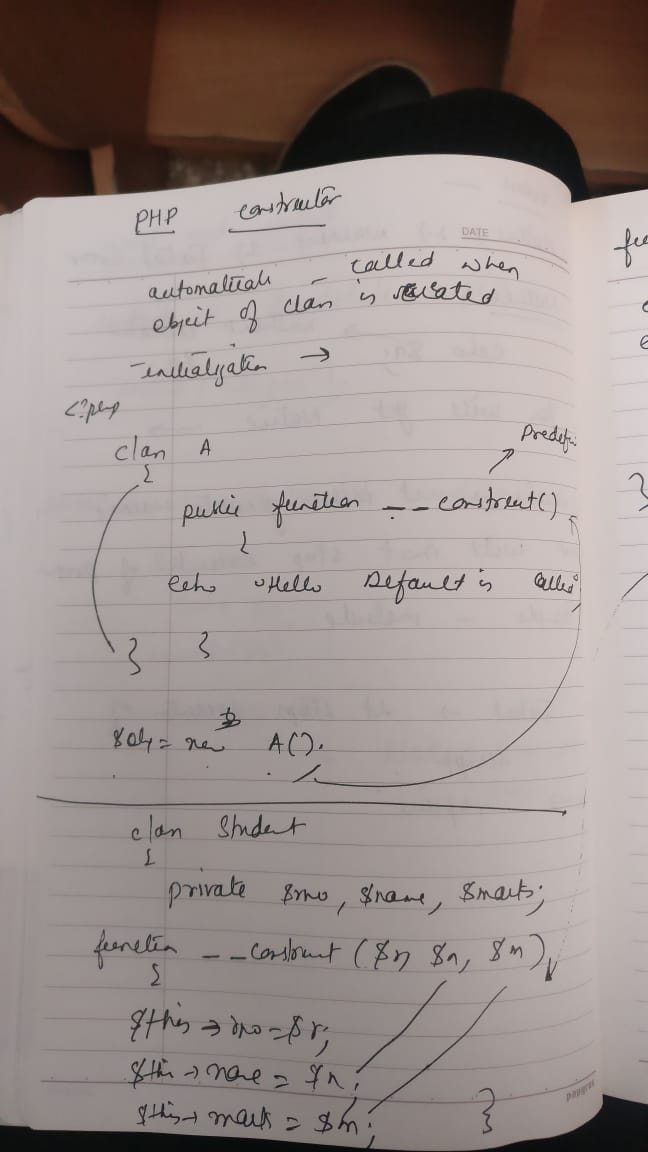 PHP constructor
DATE
automaticah - called when
object of class is created
- initialization →
<?php
class A
{
Predefi
public function __construct()
{
echo "Hello Default is called
} }
$obj = new A();
class Student
{
private $rno, $name, $marks;
function __construct ($r, $n, $m)
{
$this → rno = $r;
$this → name = $n;
$this → mark = $m;
}
papyrus
fu
}